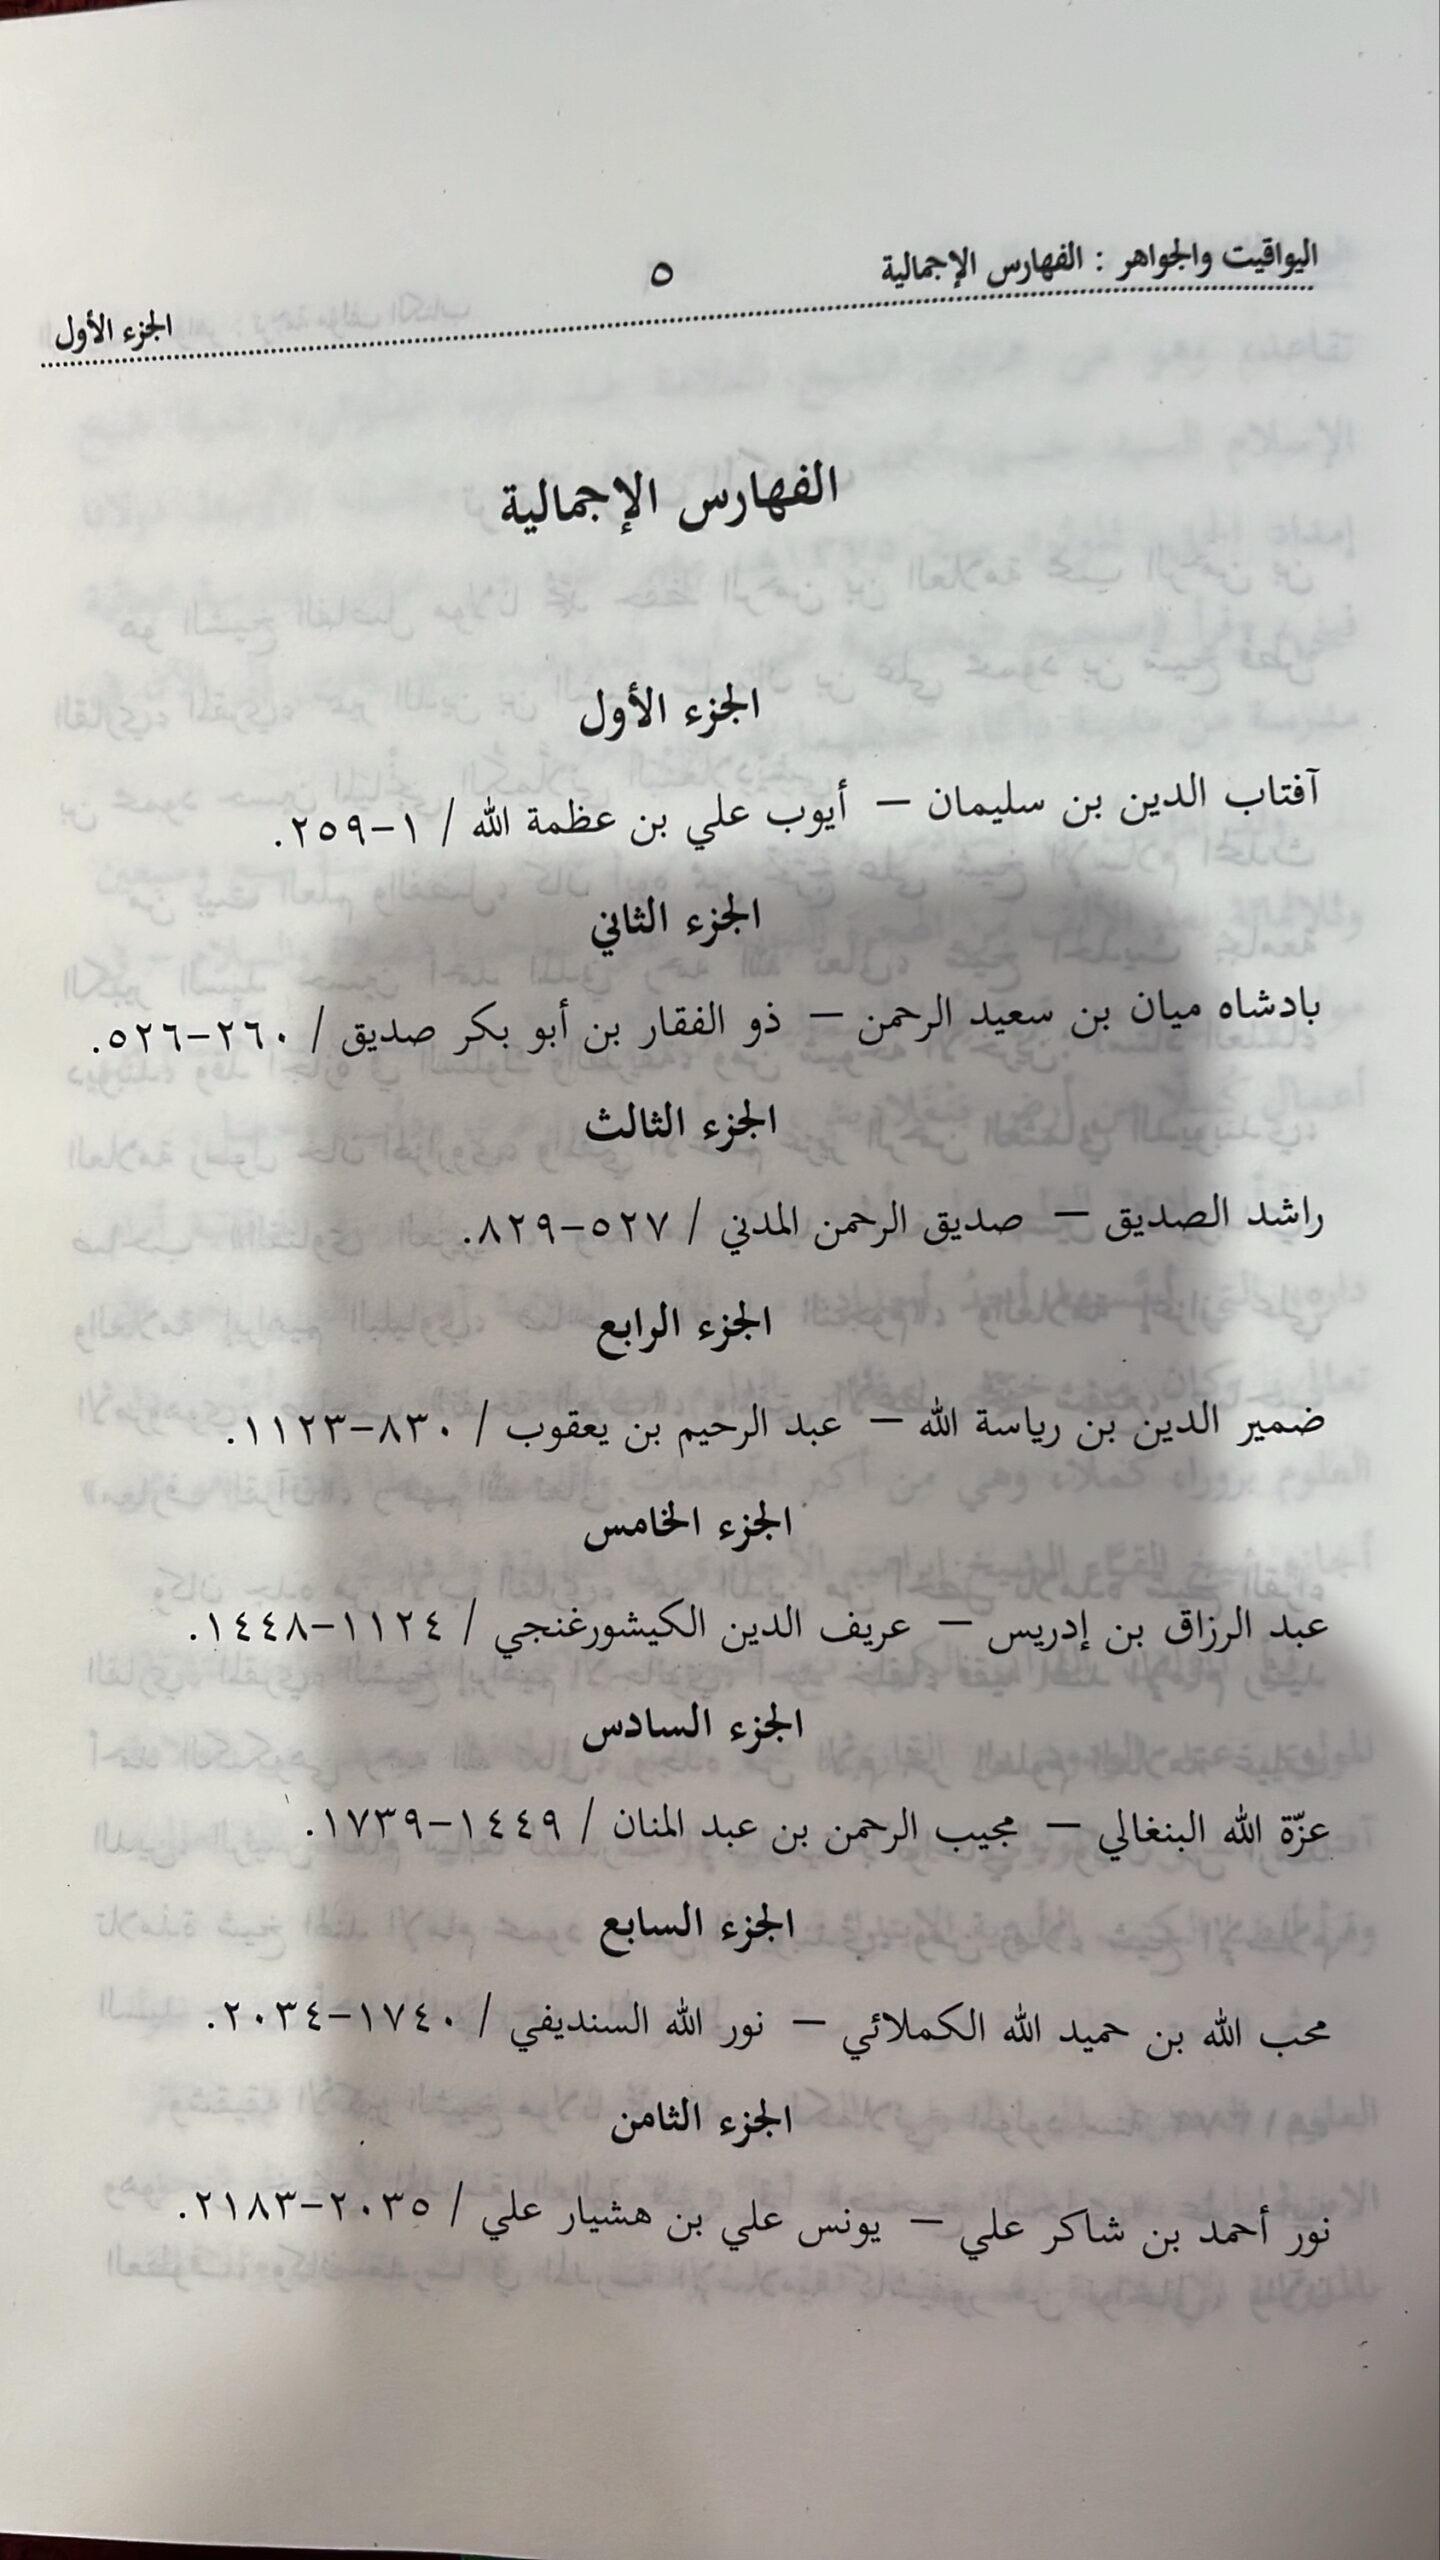 اليواقيت والجواهر : الفهارس الإجمالية ٥ الجزء الأول
الفهارس الإجمالية
الجزء الأول
آفتاب الدين بن سليمان – أيوب علي بن عظمة الله / ١-٢٥٩.
الجزء الثاني
بادشاه ميان بن سعيد الرحمن – ذو الفقار بن أبو بكر صديق / ٢٦٠-٥٢٦.
الجزء الثالث
راشد الصديق – صديق الرحمن المدني / ٥٢٧-٨٢٩.
الجزء الرابع
ضمير الدين بن رياسة الله – عبد الرحيم بن يعقوب / ٨٣٠-١١٢٣.
الجزء الخامس
عبد الرزاق بن إدريس – عريف الدين الكيشورغنجي / ١١٢٤-١٤٤٨.
الجزء السادس
عزّة الله البنغالي – مجيب الرحمن بن عبد المنان / ١٤٤٩-١٧٣٩.
الجزء السابع
محب الله بن حميد الله الكملائي – نور الله السنديفي / ١٧٤٠-٢٠٣٤.
الجزء الثامن
نور أحمد بن شاكر علي – يونس علي بن هشيار علي / ٢٠٣٥-٢١٨٣.